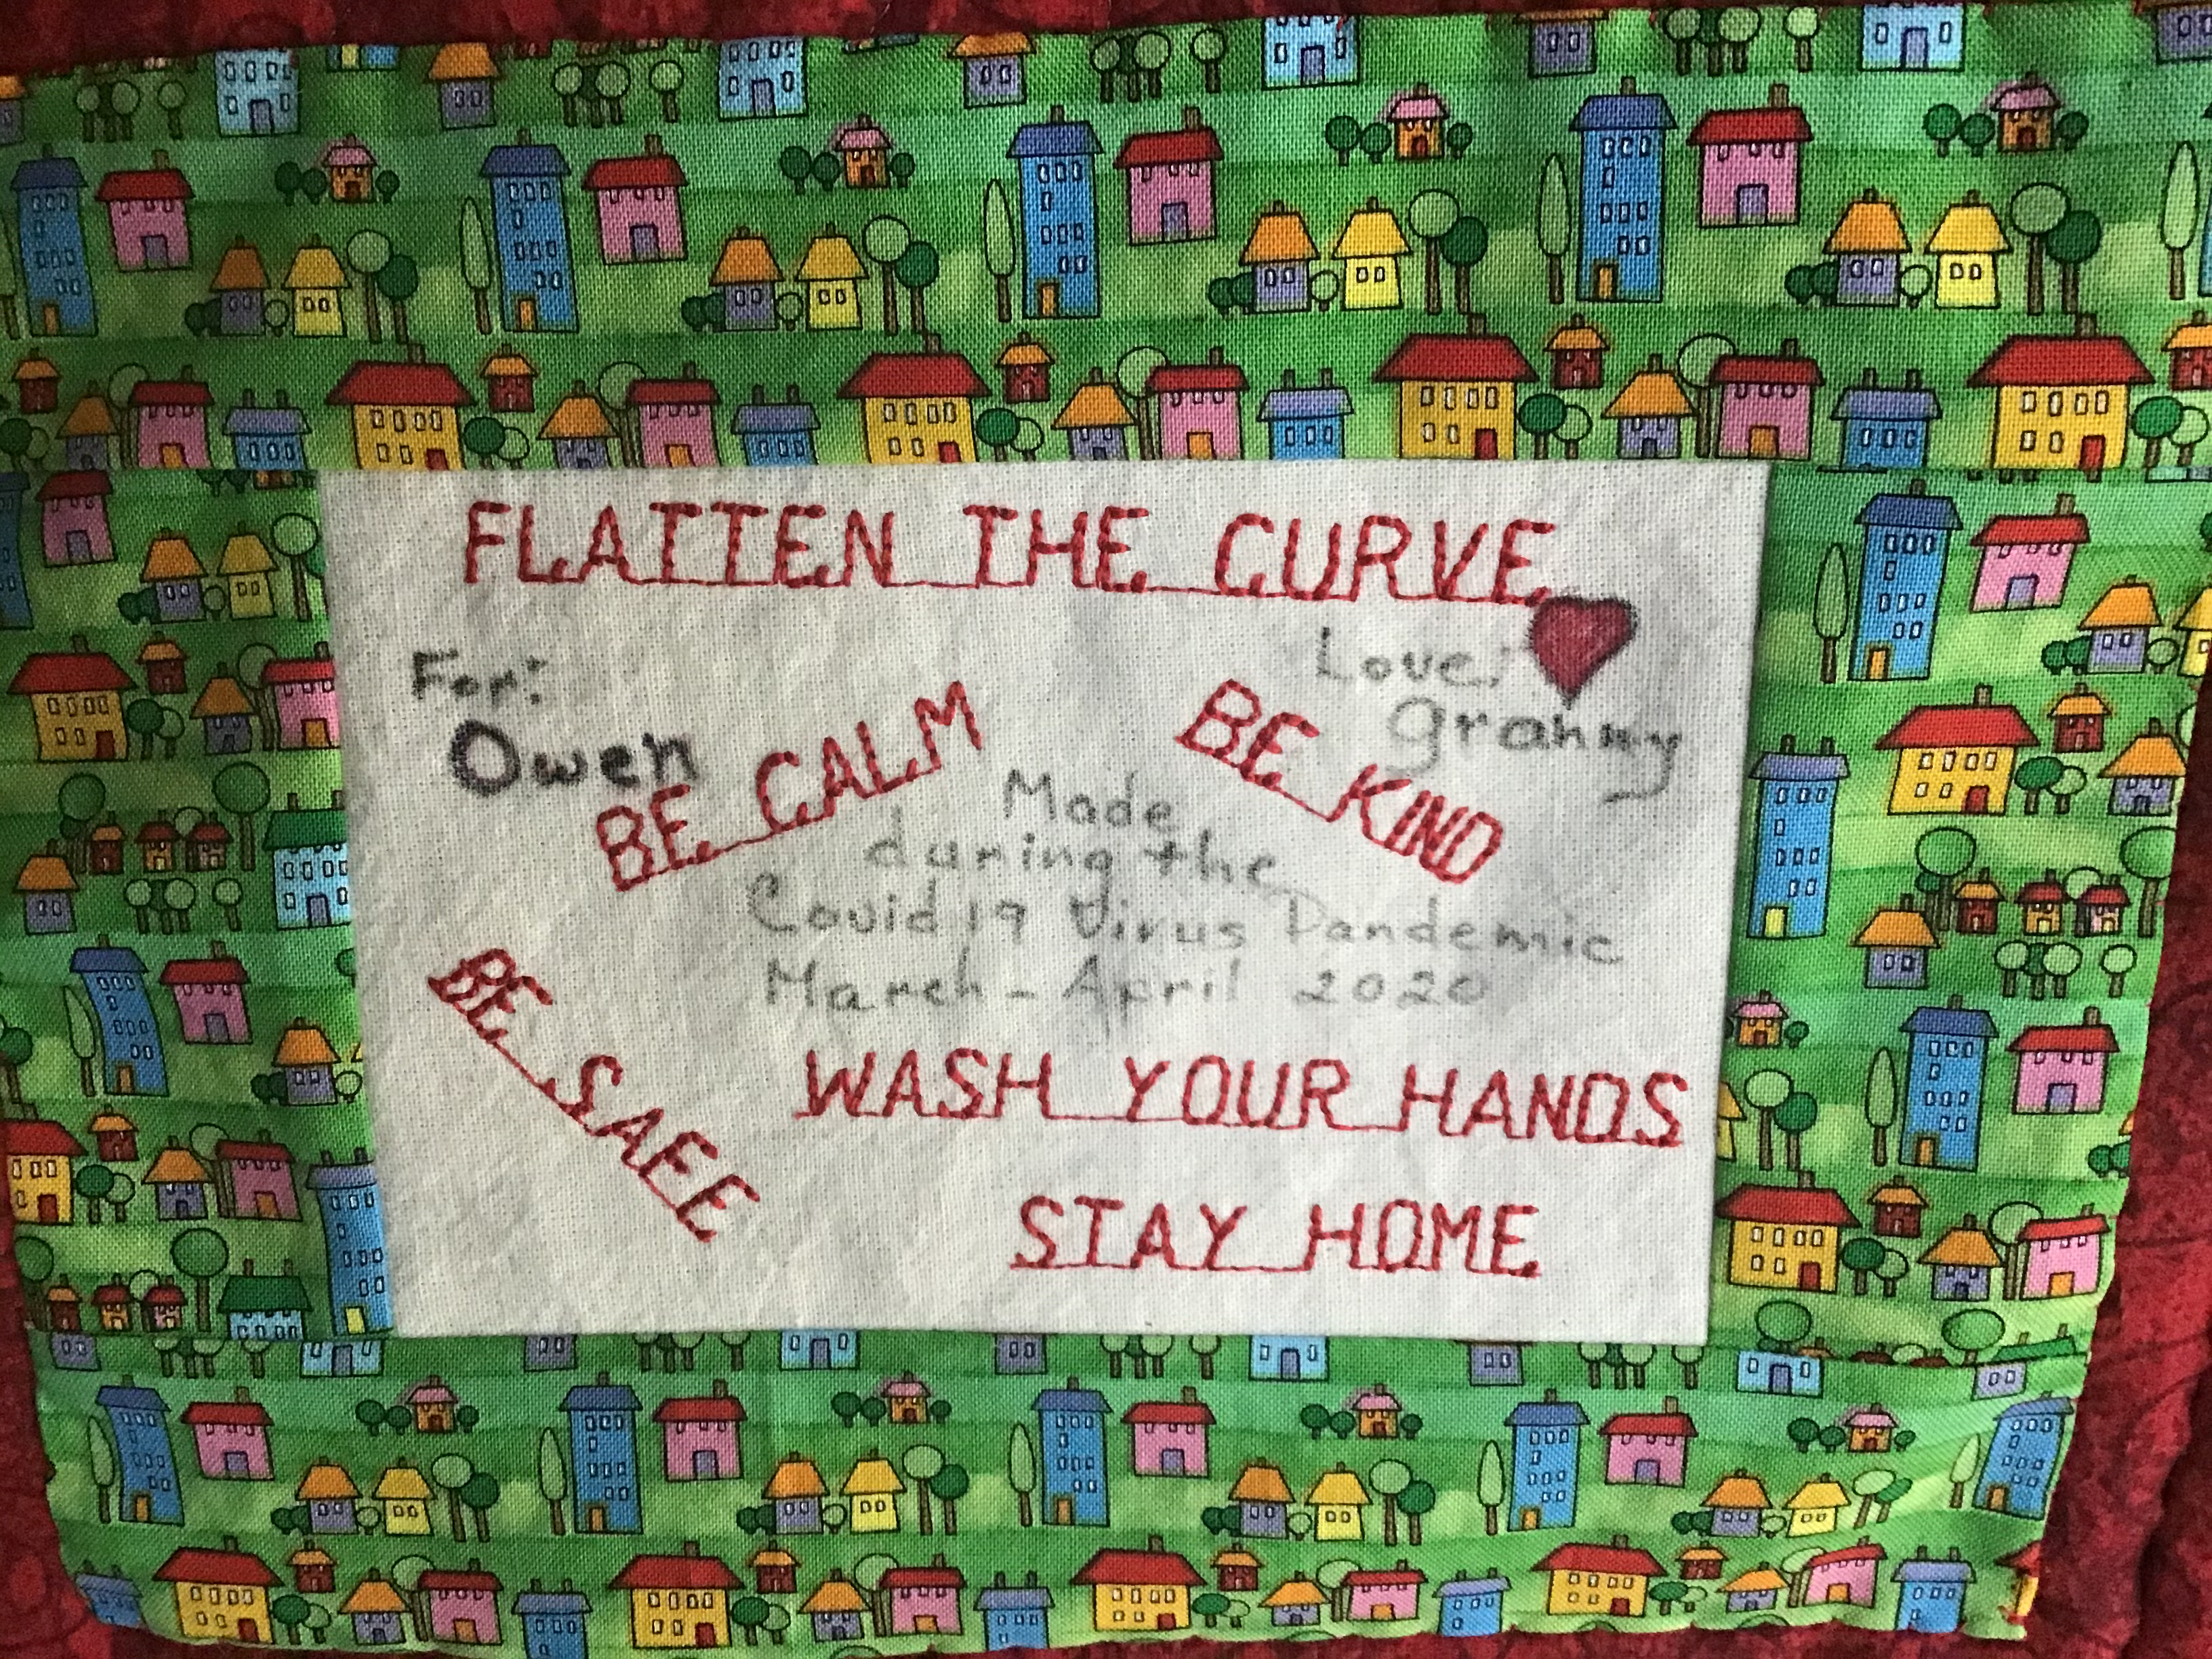 FLATTEN THE CURVE
For:
Owen
Love:
Granny
BE CALM
BE KIND
Made
during the
Covid 19 Virus Pandemic
March - April 2020
BE SAFE
WASH YOUR HANDS
STAY HOME